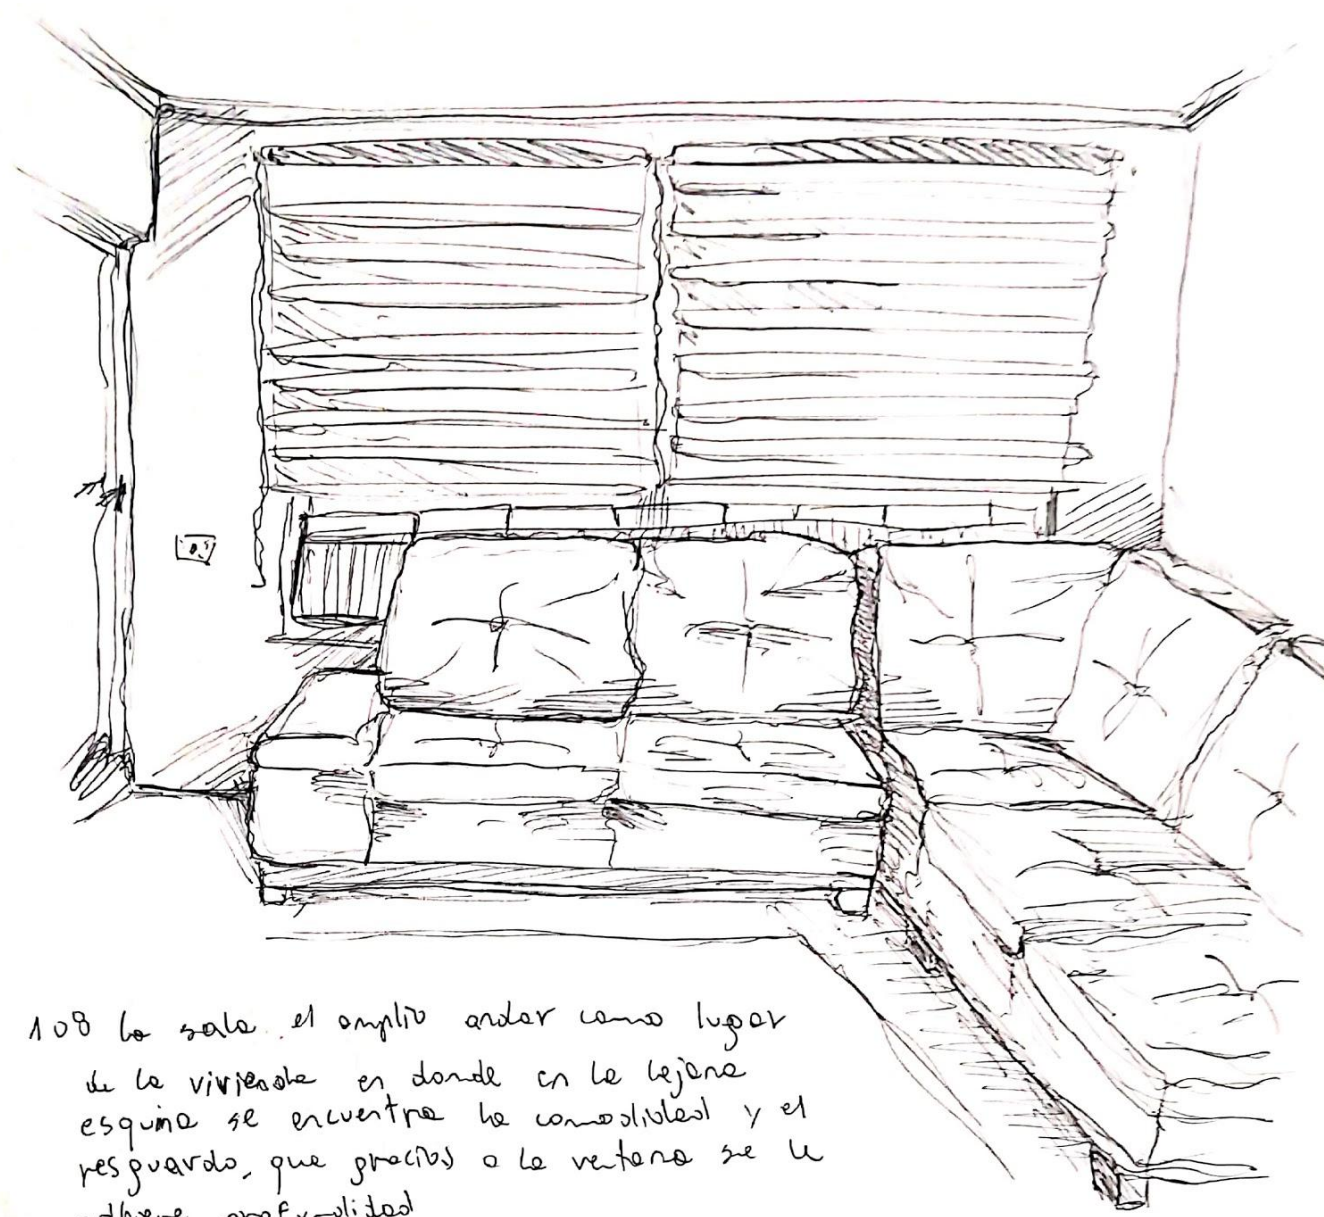 108 la sala. el amplio andar como lugar
de la vivienda en donde en la lejana
esquina se encuentra la comodidad y el
resguardo, que gracias a la ventana se le
adhiere profundidad